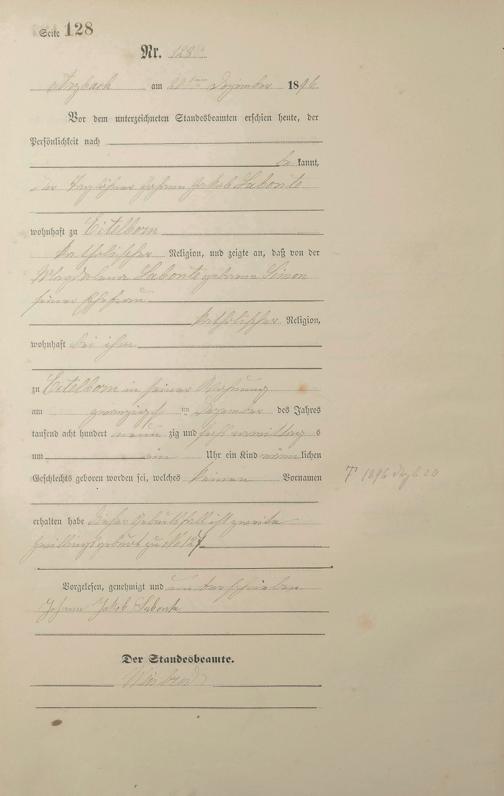 Seite 128
Nr. 128
Arzbach am 20ten Dezember 1896
Vor dem unterzeichneten Standesbeamten erschien heute, der
Persönlichkeit nach
be kannt,
der Taglöhner Johann Jakob Labonte
wohnhaft zu Eitelborn
katholischer Religion, und zeigte an, daß von der
Magdalena Labonte geborene Simon
seiner Ehefrau
katholischer Religion,
wohnhaft bei ihm
zu Eitelborn in seiner Wohnung
am zwanzigsten Dezember des Jahres
tausend acht hundert neun zig und sechs vormittags
um ein Uhr ein Kind männlichen
Geschlechts geboren worden sei, welches keinen Vornamen
† 1896 Dezb 20
erhalten habe dieser Geburtsfall ist zweite
Zwillingsgeburt zu No 127
Vorgelesen, genehmigt und unterschrieben
Johann Jakob Labonte
Der Standesbeamte.